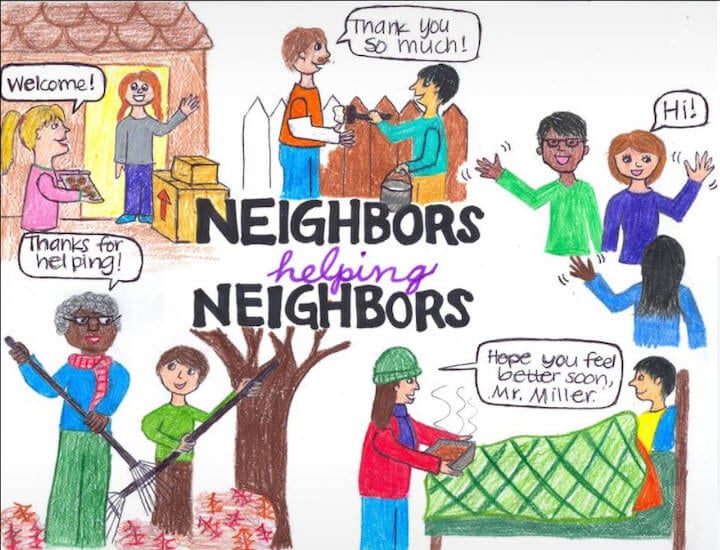 Welcome!
Thank you
so much!
Hi!
NEIGHBORS
helping
NEIGHBORS
Thanks for
helping!
Hope you feel
better soon,
Mr. Miller.